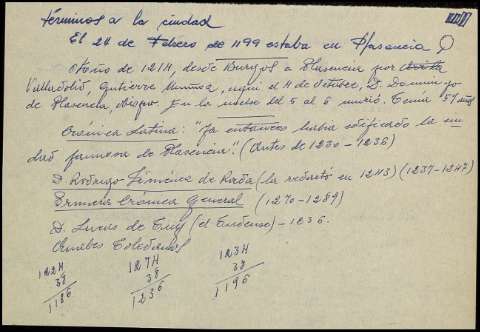 términos a la ciudad
El 24 de Febrero de 1199 estaba en Plasencia
Otoño de 1214, desde Burgos a Plasencia por
Valladolid, Gutierre Muñoz, aquí el 4 de Octubre, D. Domingo
de Plasencia, obispo. En la noche del 5 al 6 murió. Tenía 57 años
Crónica Latina: "Ya entonces había edificado la ciu
dad famosa de Plasencia". (Antes de 1230-1236)
D. Rodrigo Jiménez de Rada (la redactó en 1243) (1237-1247)
Primera Crónica General (1270-1289)
D. Lucas de Tuy (el Tudense) - 1236.
Anales Toledanos
1224
38
1186
1274
38
1236
1234
38
1196